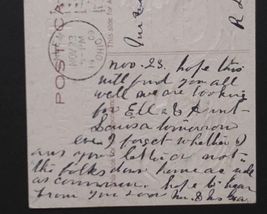 POSTCA
NOV 23
OHIO
nov. 23. hope this
will find you all
well we are looking
for Ella & Aunt
Louisa tomorrow
eve I forget whether I
ans your letter or not
the folks down home as well
as common. hope to hear
from you soon Mr. &